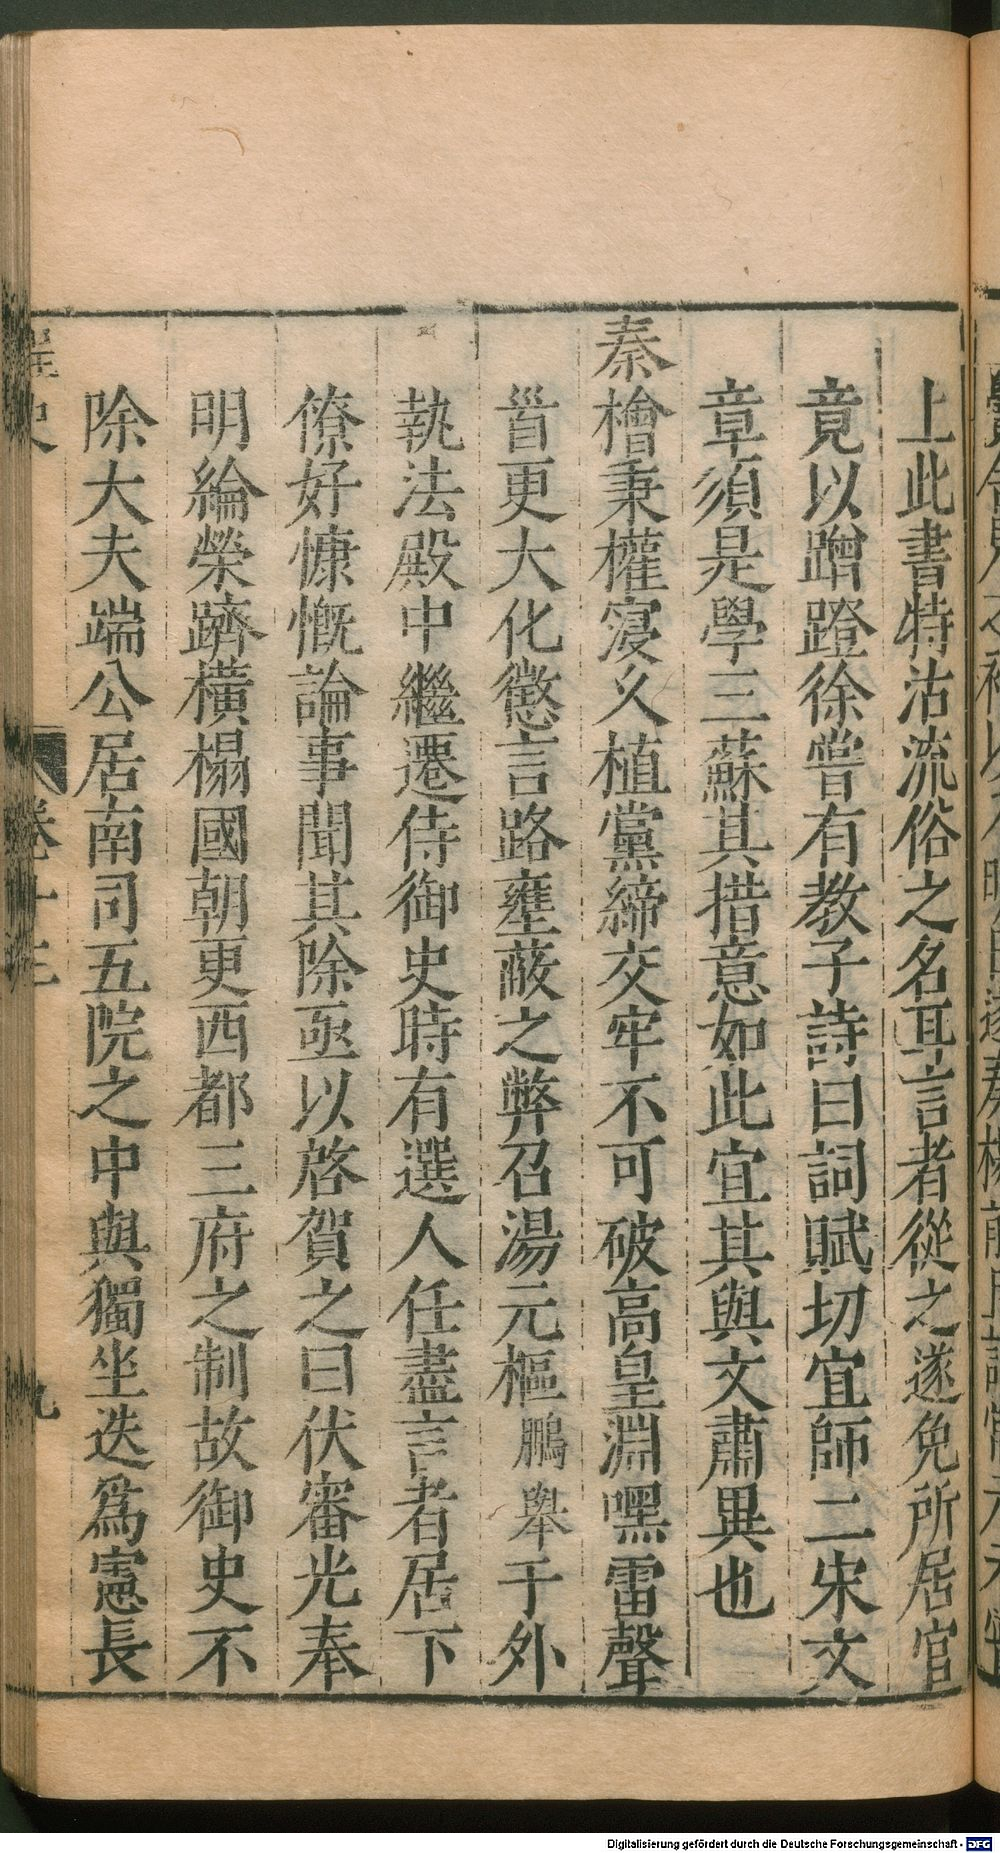 上此書特沽流俗之名耳言者從之遂免所居官
竟以蹭蹬徐嘗有教子詩曰詞賦切宜師二宋文
章須是學三蘇其措意如此宜其與文肅異也
秦檜秉權寖久植黨締交牢不可破高皇淵嘿雷聲
首更大化懲言路壅蔽之弊召湯元樞鵬舉于外
執法殿中繼遷侍御史時有選人任盡言者居下
僚好慷慨論事聞其除亟以啓賀之曰伏審光奉
明綸榮躋橫榻國朝更西都三府之制故御史不
除大夫端公居南司五院之中與獨坐迭爲憲長
桯史
卷十三
九
Digitalisierung gefördert durch die Deutsche Forschungsgemeinschaft - DFG